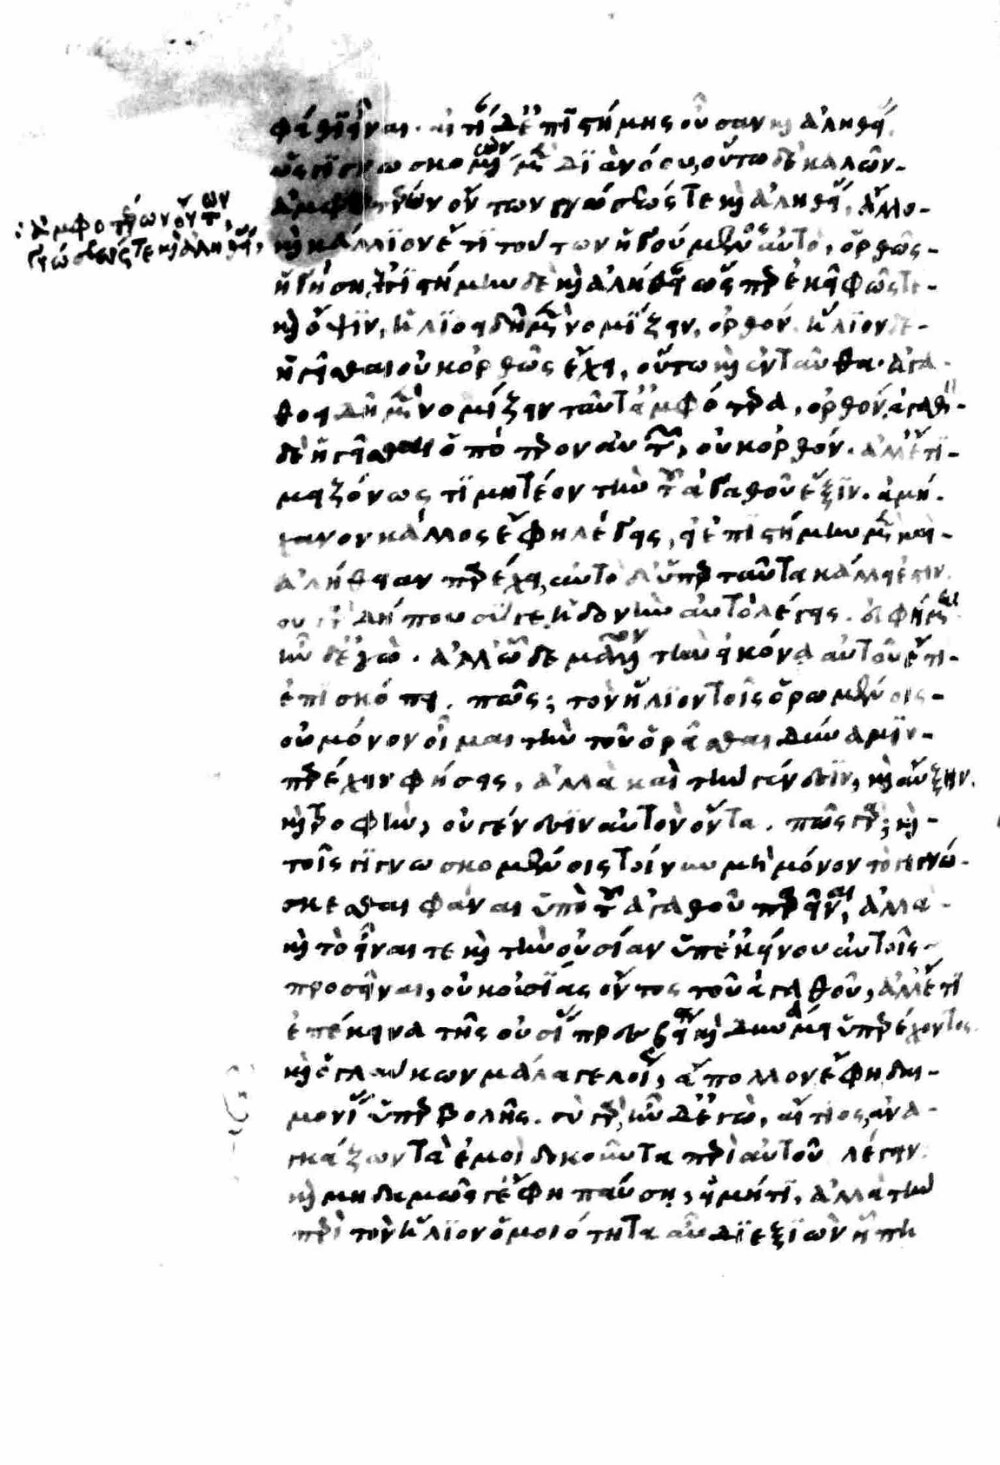 φάθι εἶναι· αἰτίαν δ' ἐπιστήμης οὖσαν καὶ ἀληθείας,
ὡς γιγνωσκομένων μὲν διὰ νόου, οὕτω δὲ καλῶν-
ἀμφοτέρων ὄντων γνώσεώς τε καὶ ἀληθείας, ἄλλο-
καὶ κάλλιον ἔτι τούτων ἡγούμενος αὐτό, ὀρθῶς-
ἡγήσῃ. ἐπιστήμην δὲ καὶ ἀλήθειαν ὥσπερ ἐκεῖ φῶς τε-
καὶ ὄψιν, ἡλιοειδῆ μὲν νομίζειν, ὀρθόν. ἥλιον δὲ-
ἡγεῖσθαι οὐκ ὀρθῶς ἔχει, οὕτω καὶ ἐνταῦθα· ἀγα-
θοειδῆ μὲν νομίζειν ταῦτ' ἀμφότερα, ὀρθόν, ἀγαθὸν-
δὲ ἡγεῖσθαι ὁπότερον αὐτῶν, οὐκ ὀρθόν. ἀλλ' ἔτι-
μειζόνως τιμητέον τὴν τοῦ ἀγαθοῦ ἕξιν. ἀμή-
χανον κάλλος ἔφη λέγεις, εἰ ἐπιστήμην μὲν καὶ-
ἀλήθειαν παρέχει, αὐτὸ δ' ὑπὲρ ταῦτα κάλλει ἐστίν.
οὐ γὰρ δήπου σύ γε ἡδονὴν αὐτὸ λέγεις. εὐφήμει
ἦν δ' ἐγώ. ἀλλ' ὧδε μᾶλλον τὴν εἰκόνα αὐτοῦ ἔτι-
ἐπισκόπει. πῶς; τὸν ἥλιον τοῖς ὁρωμένοις-
οὐ μόνον οἶμαι τὴν τοῦ ὁρᾶσθαι δύναμιν-
παρέχειν φήσεις, ἀλλὰ καὶ τὴν γένεσιν, καὶ αὔξην.
καὶ τροφήν, οὐ γένεσιν αὐτὸν ὄντα. πῶς γάρ; καὶ-
τοῖς γιγνωσκομένοις τοίνυν μὴ μόνον τὸ γιγνώ-
σκεσθαι φάναι ὑπὸ τοῦ ἀγαθοῦ παρεῖναι, ἀλλὰ-
καὶ τὸ εἶναί τε καὶ τὴν οὐσίαν ὑπ' ἐκείνου αὐτοῖς-
προσεῖναι, οὐκ οὐσίας ὄντος τοῦ ἀγαθοῦ, ἀλλ' ἔτι
ἐπέκεινα τῆς οὐσίας πρεσβείᾳ καὶ δυνάμει ὑπερέχοντος.
καὶ ὁ γλαύκων μάλα γελοίως, ἄπολλον ἔφη δαι-
μονίας ὑπερβολῆς. σὺ γὰρ, ἦν δ' ἐγώ, αἴτιος, ἀνα-
γκάζων τὰ ἐμοὶ δοκοῦντα περὶ αὐτοῦ λέγειν.
καὶ μηδαμῶς γ' ἔφη παύσῃ, εἰ μή τι, ἀλλὰ τὴν
περὶ τὸν ἥλιον ὁμοιότητα αὖ διεξιὼν εἴ πη
:ἀμφοτέρων ὄντων,
γνώσεώς τε καὶ ἀληθείας,